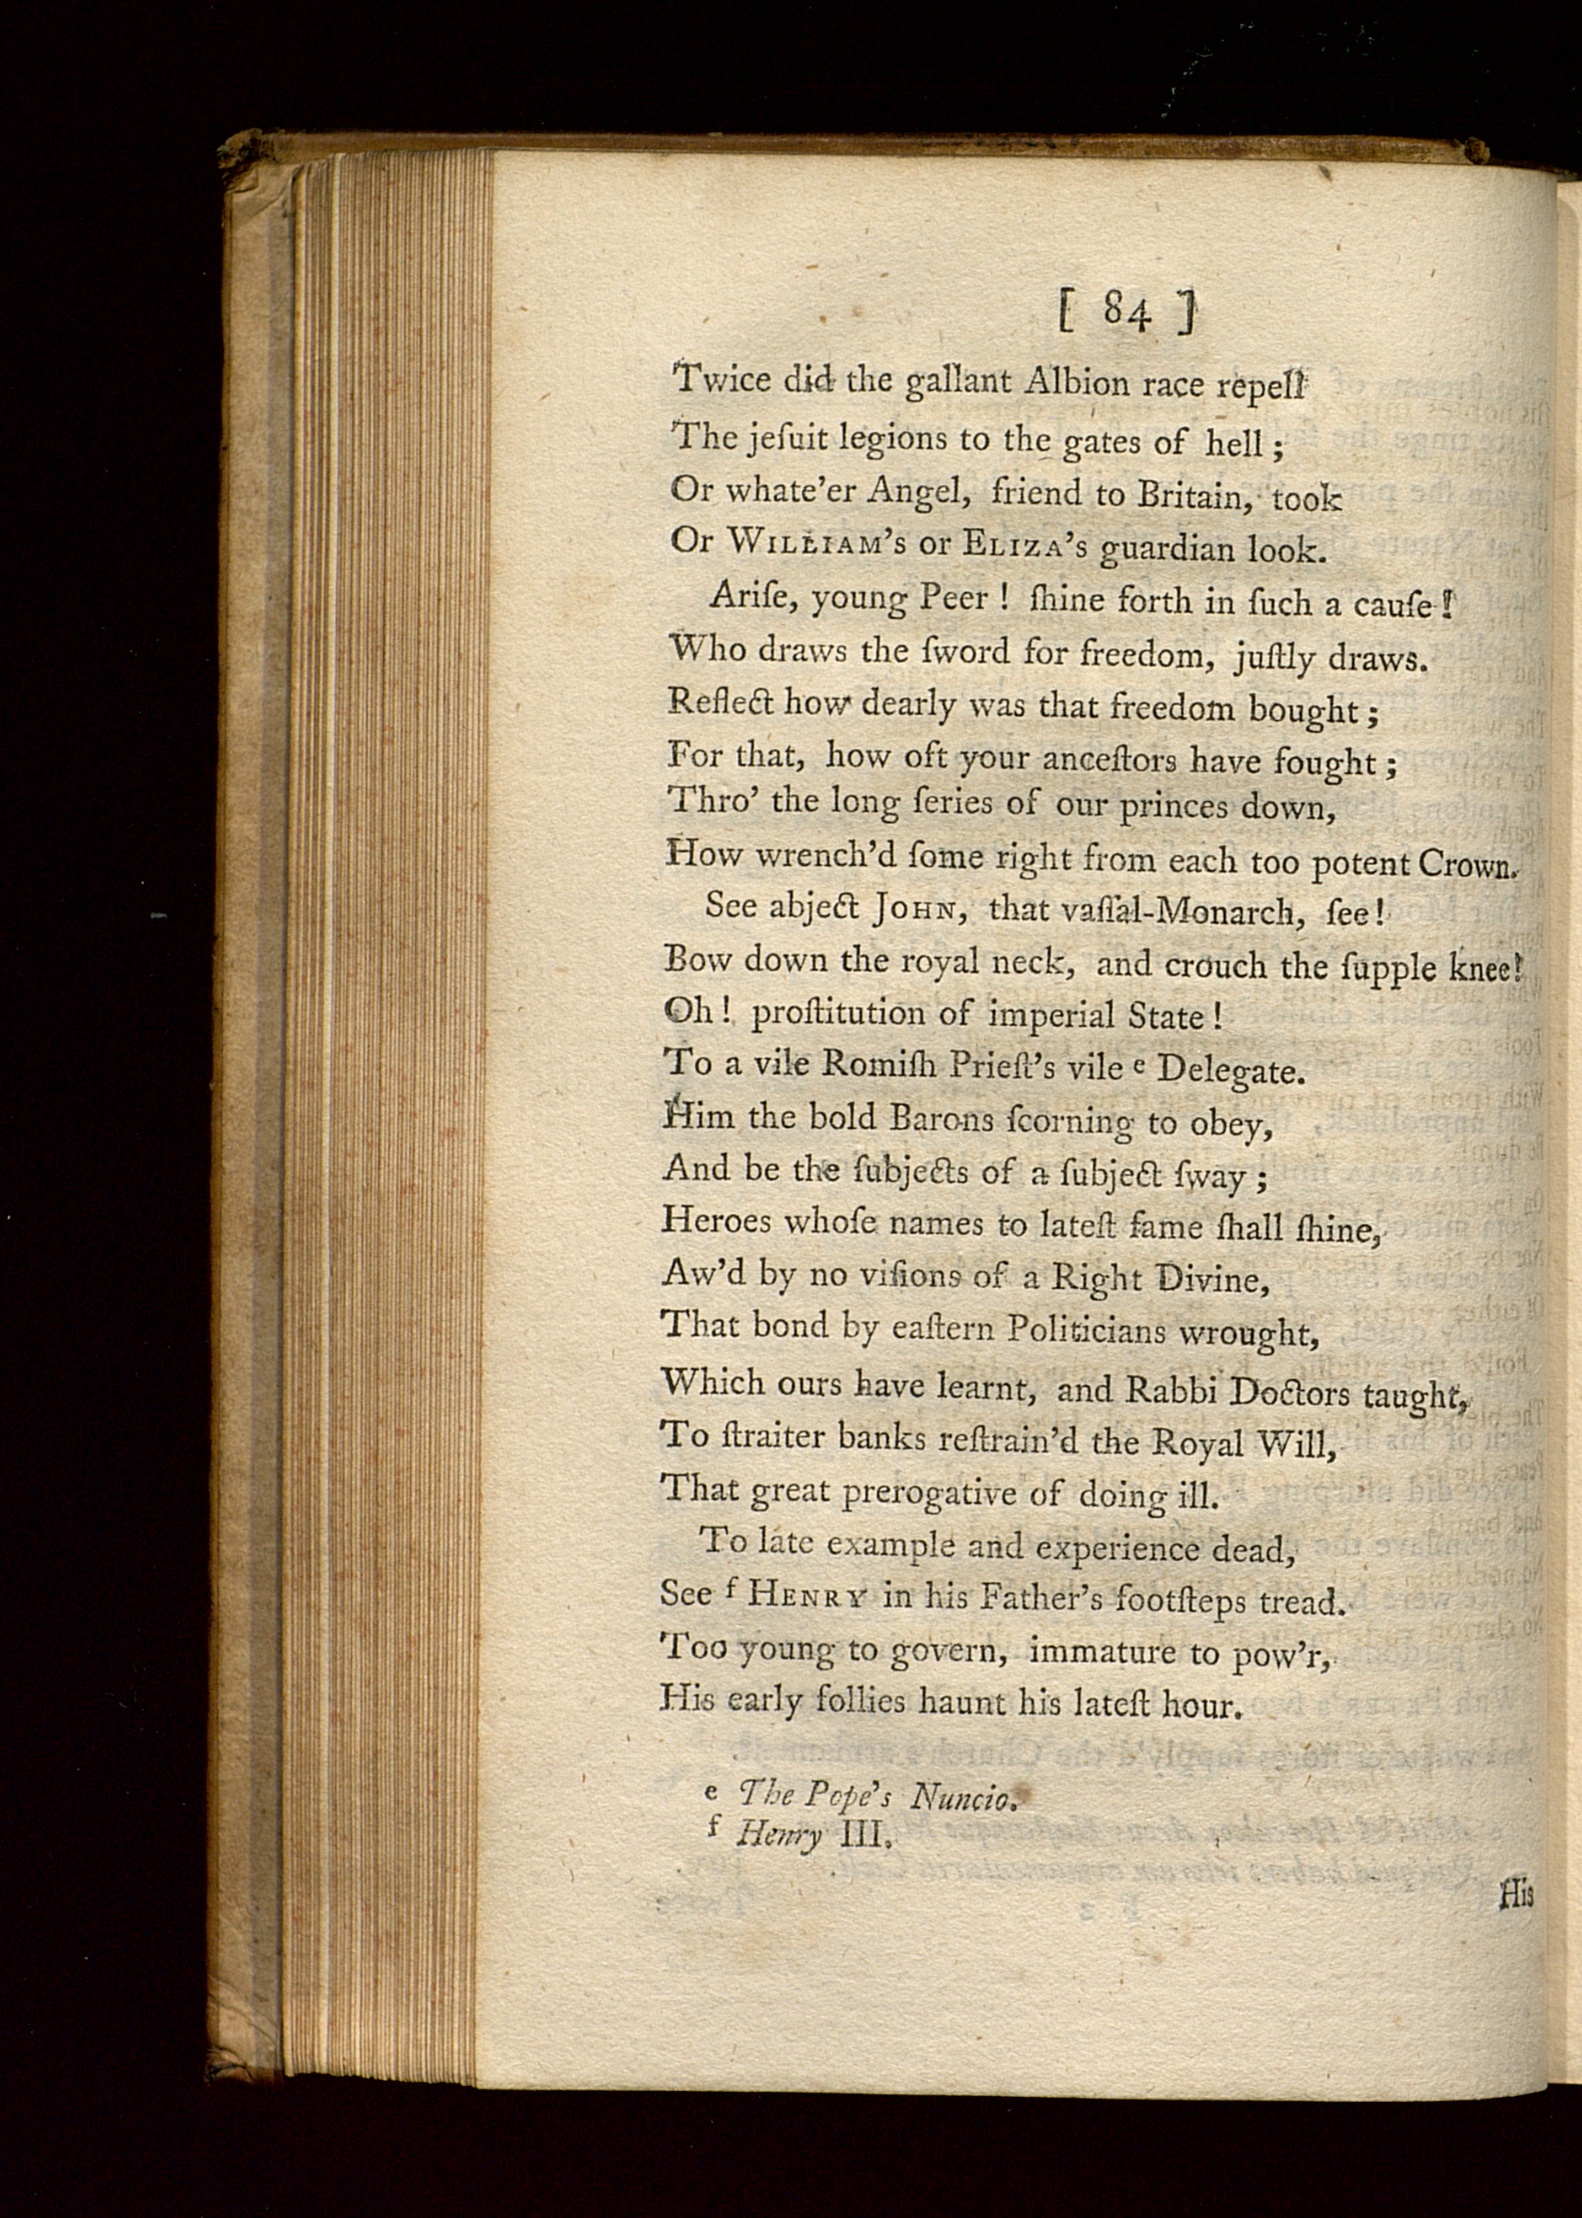 [ 84 ]
Twice did the gallant Albion race repell
The jeſuit legions to the gates of hell ;
Or whate'er Angel, friend to Britain, took
Or WILLIAM's or ELIZA's guardian look.
Ariſe, young Peer ! ſhine forth in ſuch a cauſe !
Who draws the ſword for freedom, juſtly draws.
Reflect how dearly was that freedom bought ;
For that, how oft your anceſtors have fought ;
Thro' the long ſeries of our princes down,
How wrench'd ſome right from each too potent Crown.
See abject JOHN, that vaſſal-Monarch, ſee !
Bow down the royal neck, and crouch the ſupple knee!
Oh ! proſtitution of imperial State !
To a vile Romiſh Prieſt's vile e Delegate.
Him the bold Barons ſcorning to obey,
And be the ſubjects of a ſubject ſway ;
Heroes whoſe names to lateſt fame ſhall ſhine,
Aw'd by no viſions of a Right Divine,
That bond by eaſtern Politicians wrought,
Which ours have learnt, and Rabbi Doctors taught,
To ſtraiter banks reſtrain'd the Royal Will,
That great prerogative of doing ill.
To late example and experience dead,
See f HENRY in his Father's footſteps tread.
Too young to govern, immature to pow'r,
His early follies haunt his lateſt hour.
e The Pope's Nuncio.
f Henry III.
His